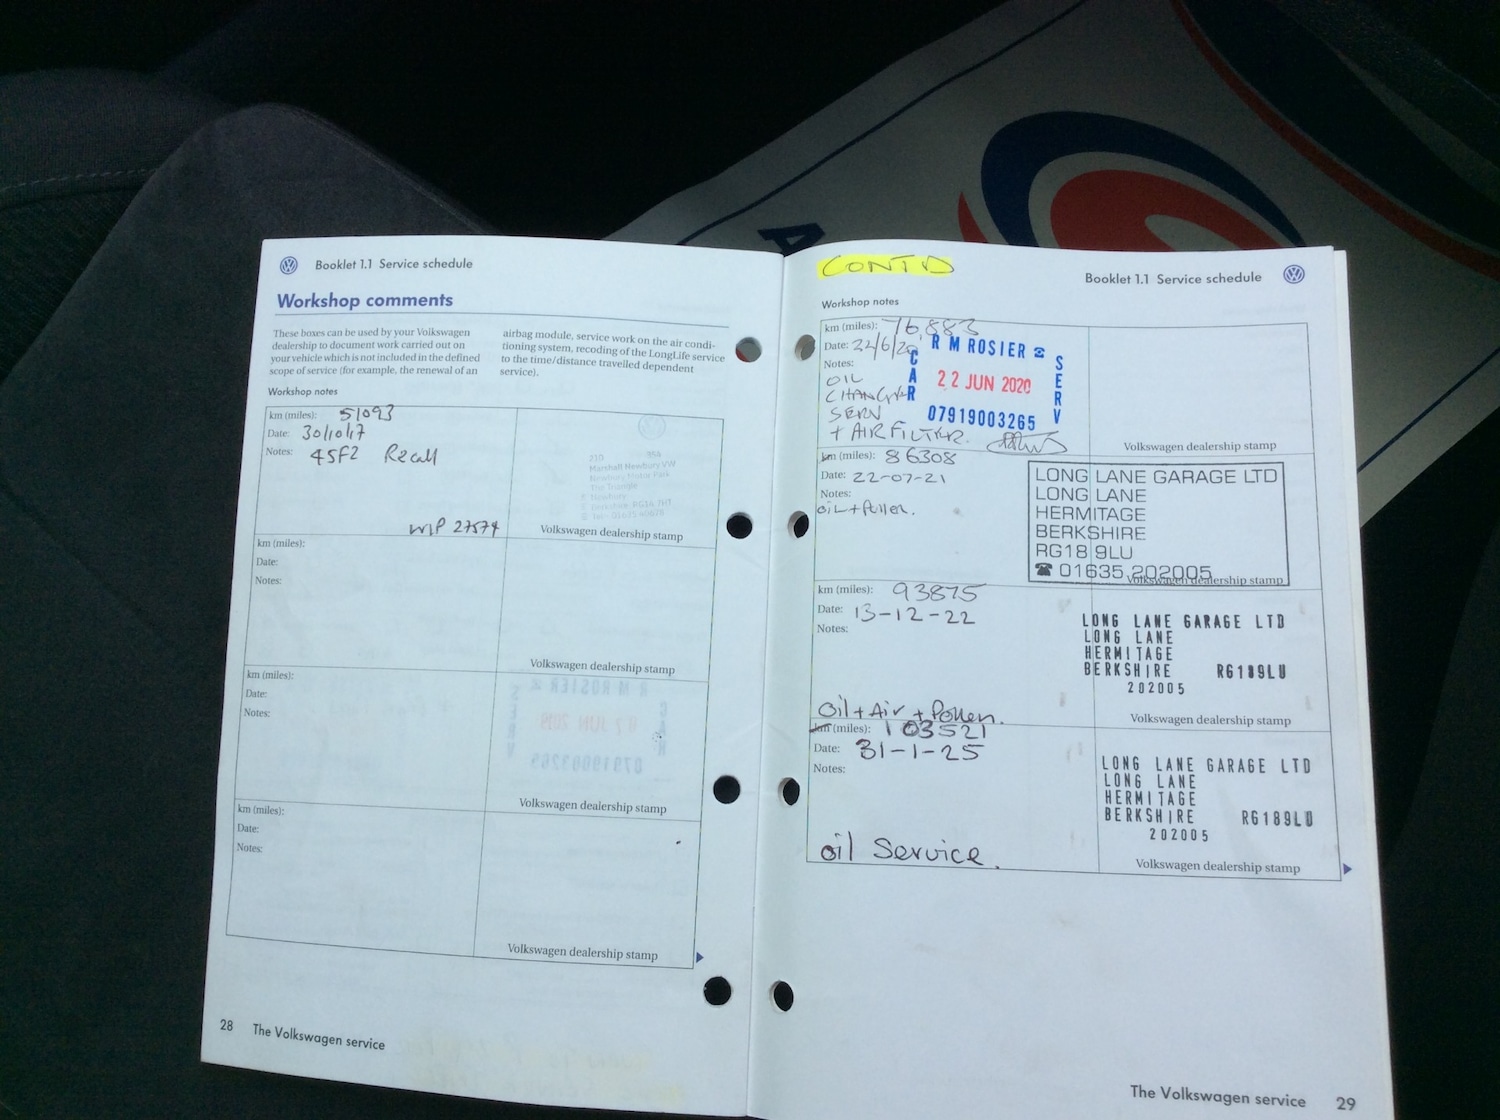 Booklet 1.1 Service schedule
Workshop comments
These boxes can be used by your Volkswagen
dealership to document work carried out on
your vehicle which is not included in the defined
scope of service (for example, the renewal of an
airbag module, service work on the air condi-
tioning system, recoding of the LongLife service
to the time/distance travelled dependent
service).
Workshop notes
km (miles): 51093
Date: 30/10/17
Notes: 45F2 Recall
WIP 27574
Marshall Newbury VW
Newbury Motor Park
The Triangle
Newbury
Berkshire RG14 7HT
Volkswagen dealership stamp
km (miles):
Date:
Notes:
Volkswagen dealership stamp
km (miles):
Date:
Notes:
Volkswagen dealership stamp
km (miles):
Date:
Notes:
Volkswagen dealership stamp
28 The Volkswagen service
CONTD
Booklet 1.1 Service schedule
Workshop notes
km (miles): 76883
Date: 22/6/20
Notes:
OIL
CHANGE
SERV
+ AIR FILTER.
R M ROSIER ☎
CAR
SERV
22 JUN 2020
07919003265
Volkswagen dealership stamp
km (miles): 86308
Date: 22-07-21
Notes:
oil + Pollen.
LONG LANE GARAGE LTD
LONG LANE
HERMITAGE
BERKSHIRE
RG18 9LU
☎ 01635 202005
Volkswagen dealership stamp
km (miles): 93875
Date: 13-12-22
Notes:
Oil + Air + Pollen.
LONG LANE GARAGE LTD
LONG LANE
HERMITAGE
BERKSHIRE RG189LU
202005
Volkswagen dealership stamp
km (miles): 103521
Date: 31-1-25
Notes:
oil Service.
LONG LANE GARAGE LTD
LONG LANE
HERMITAGE
BERKSHIRE RG189LU
202005
Volkswagen dealership stamp
The Volkswagen service 29